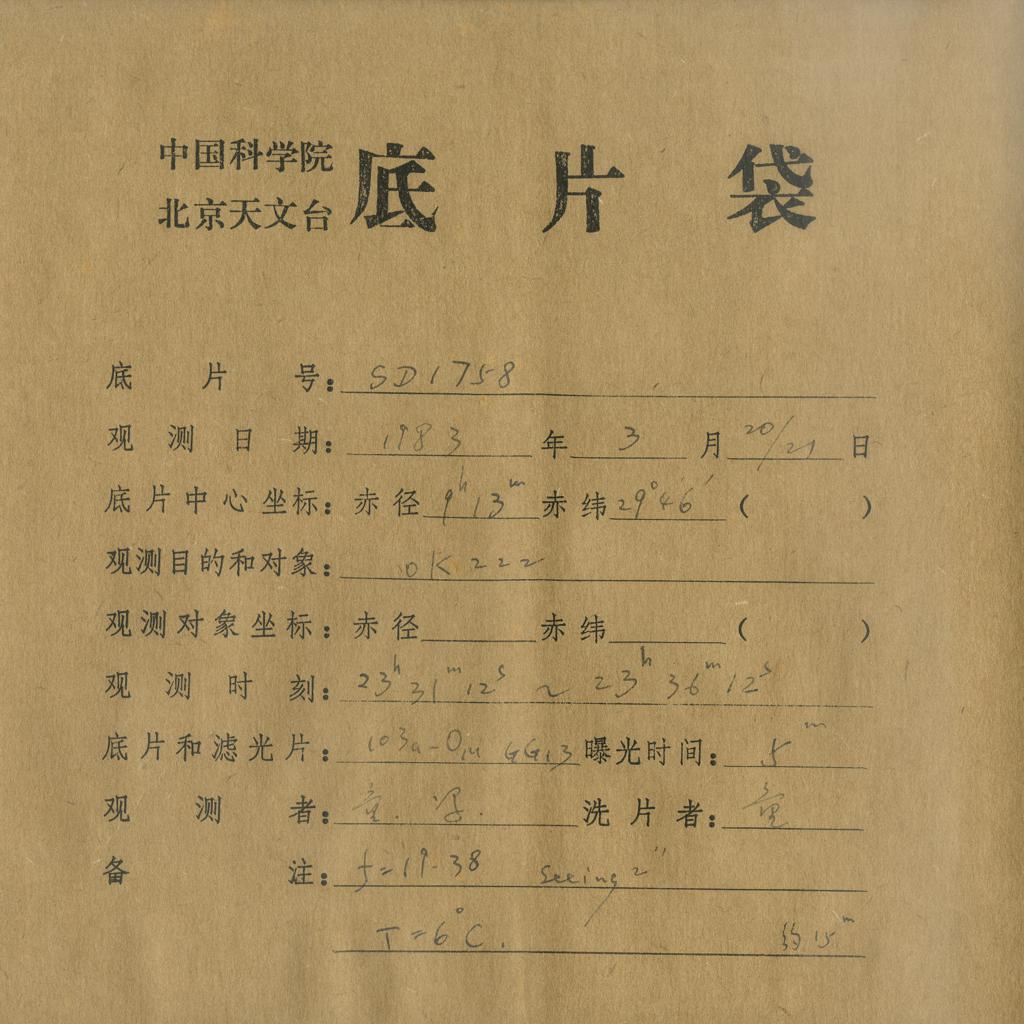 中国科学院
北京天文台 底片袋
底片号: SD1758
观测日期: 1983年3月20/21日
底片中心坐标: 赤径9h13m赤纬29°46′( )
观测目的和对象: OK222
观测对象坐标: 赤径 赤纬 ( )
观测时刻: 23h31m12s ~ 23h36m12s
底片和滤光片: 103a-O GG13 曝光时间: 5m
观测者: 童. 洗片者: 童
备注: f=19.38 Seeing 2″
T=6°C. 约15m